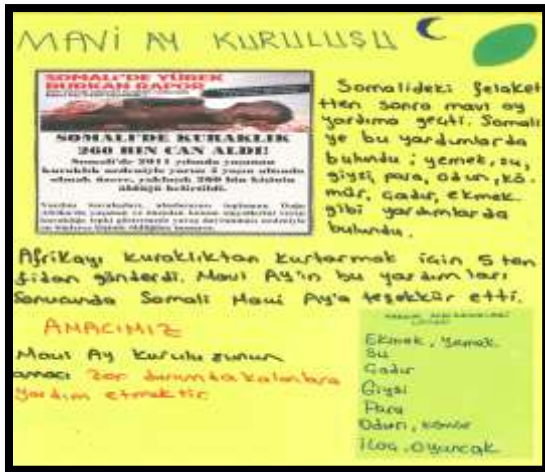 MAVİ AY KURULUŞU
SOMALİ'DE YÜREK
BURKAN RAPOR
SOMALİ'DE KURAKLIK
260 BİN CAN ALDI!
Somali'de 2011 yılında yaşanan
kuraklık nedeniyle yarısı 5 yaşın altında
olmak üzere, yaklaşık 260 bin kişinin
öldüğü belirtildi.
Somalideki felaket
tten sonra mavi ay
yardıma geçti. Somali
ye bu yardımlarda
bulundu; yemek, su,
giysi, para, odun, kö
mür, çadır, ekmek
gibi yardımlarda
bulundu.
Afrikayı kuraklıktan kurtarmak için 5 ton
fidan gönderdi. Mavi Ay'ın bu yardımları
Sonucunda Somali Mavi Ay'a teşekkür etti.
AMACIMIZ
Mavi Ay Kuruluşunun
amacı zor durumda kalanlara
yardım etmektir.
Ekmek, yemek
Su
Çadır
Giysi
Para
Odun, kömür
İlaç, oyuncak